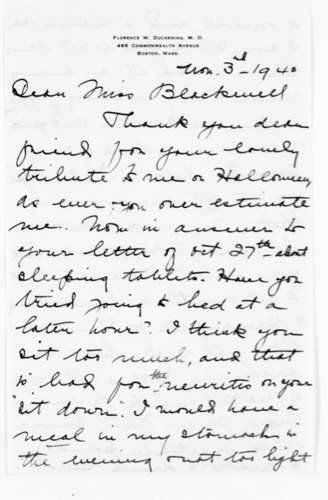 FLORENCE W. DUCKERING, M. D.
466 COMMONWEALTH AVENUE
BOSTON, MASS.
Nov. 3rd - 1940
Dear Miss Blackwell
Thank you dear
friend for your lovely
tribute to me on Halloween,
as ever you over estimate
me. Now in answer to
your letter of Oct 27th about
sleeping tablets. Have you
tried going to bed at a
later hour? I think you
sit too much, and that
is bad for the neuritis on your
"sit down". I would have a
meal in my stomach in
the evening & not too light